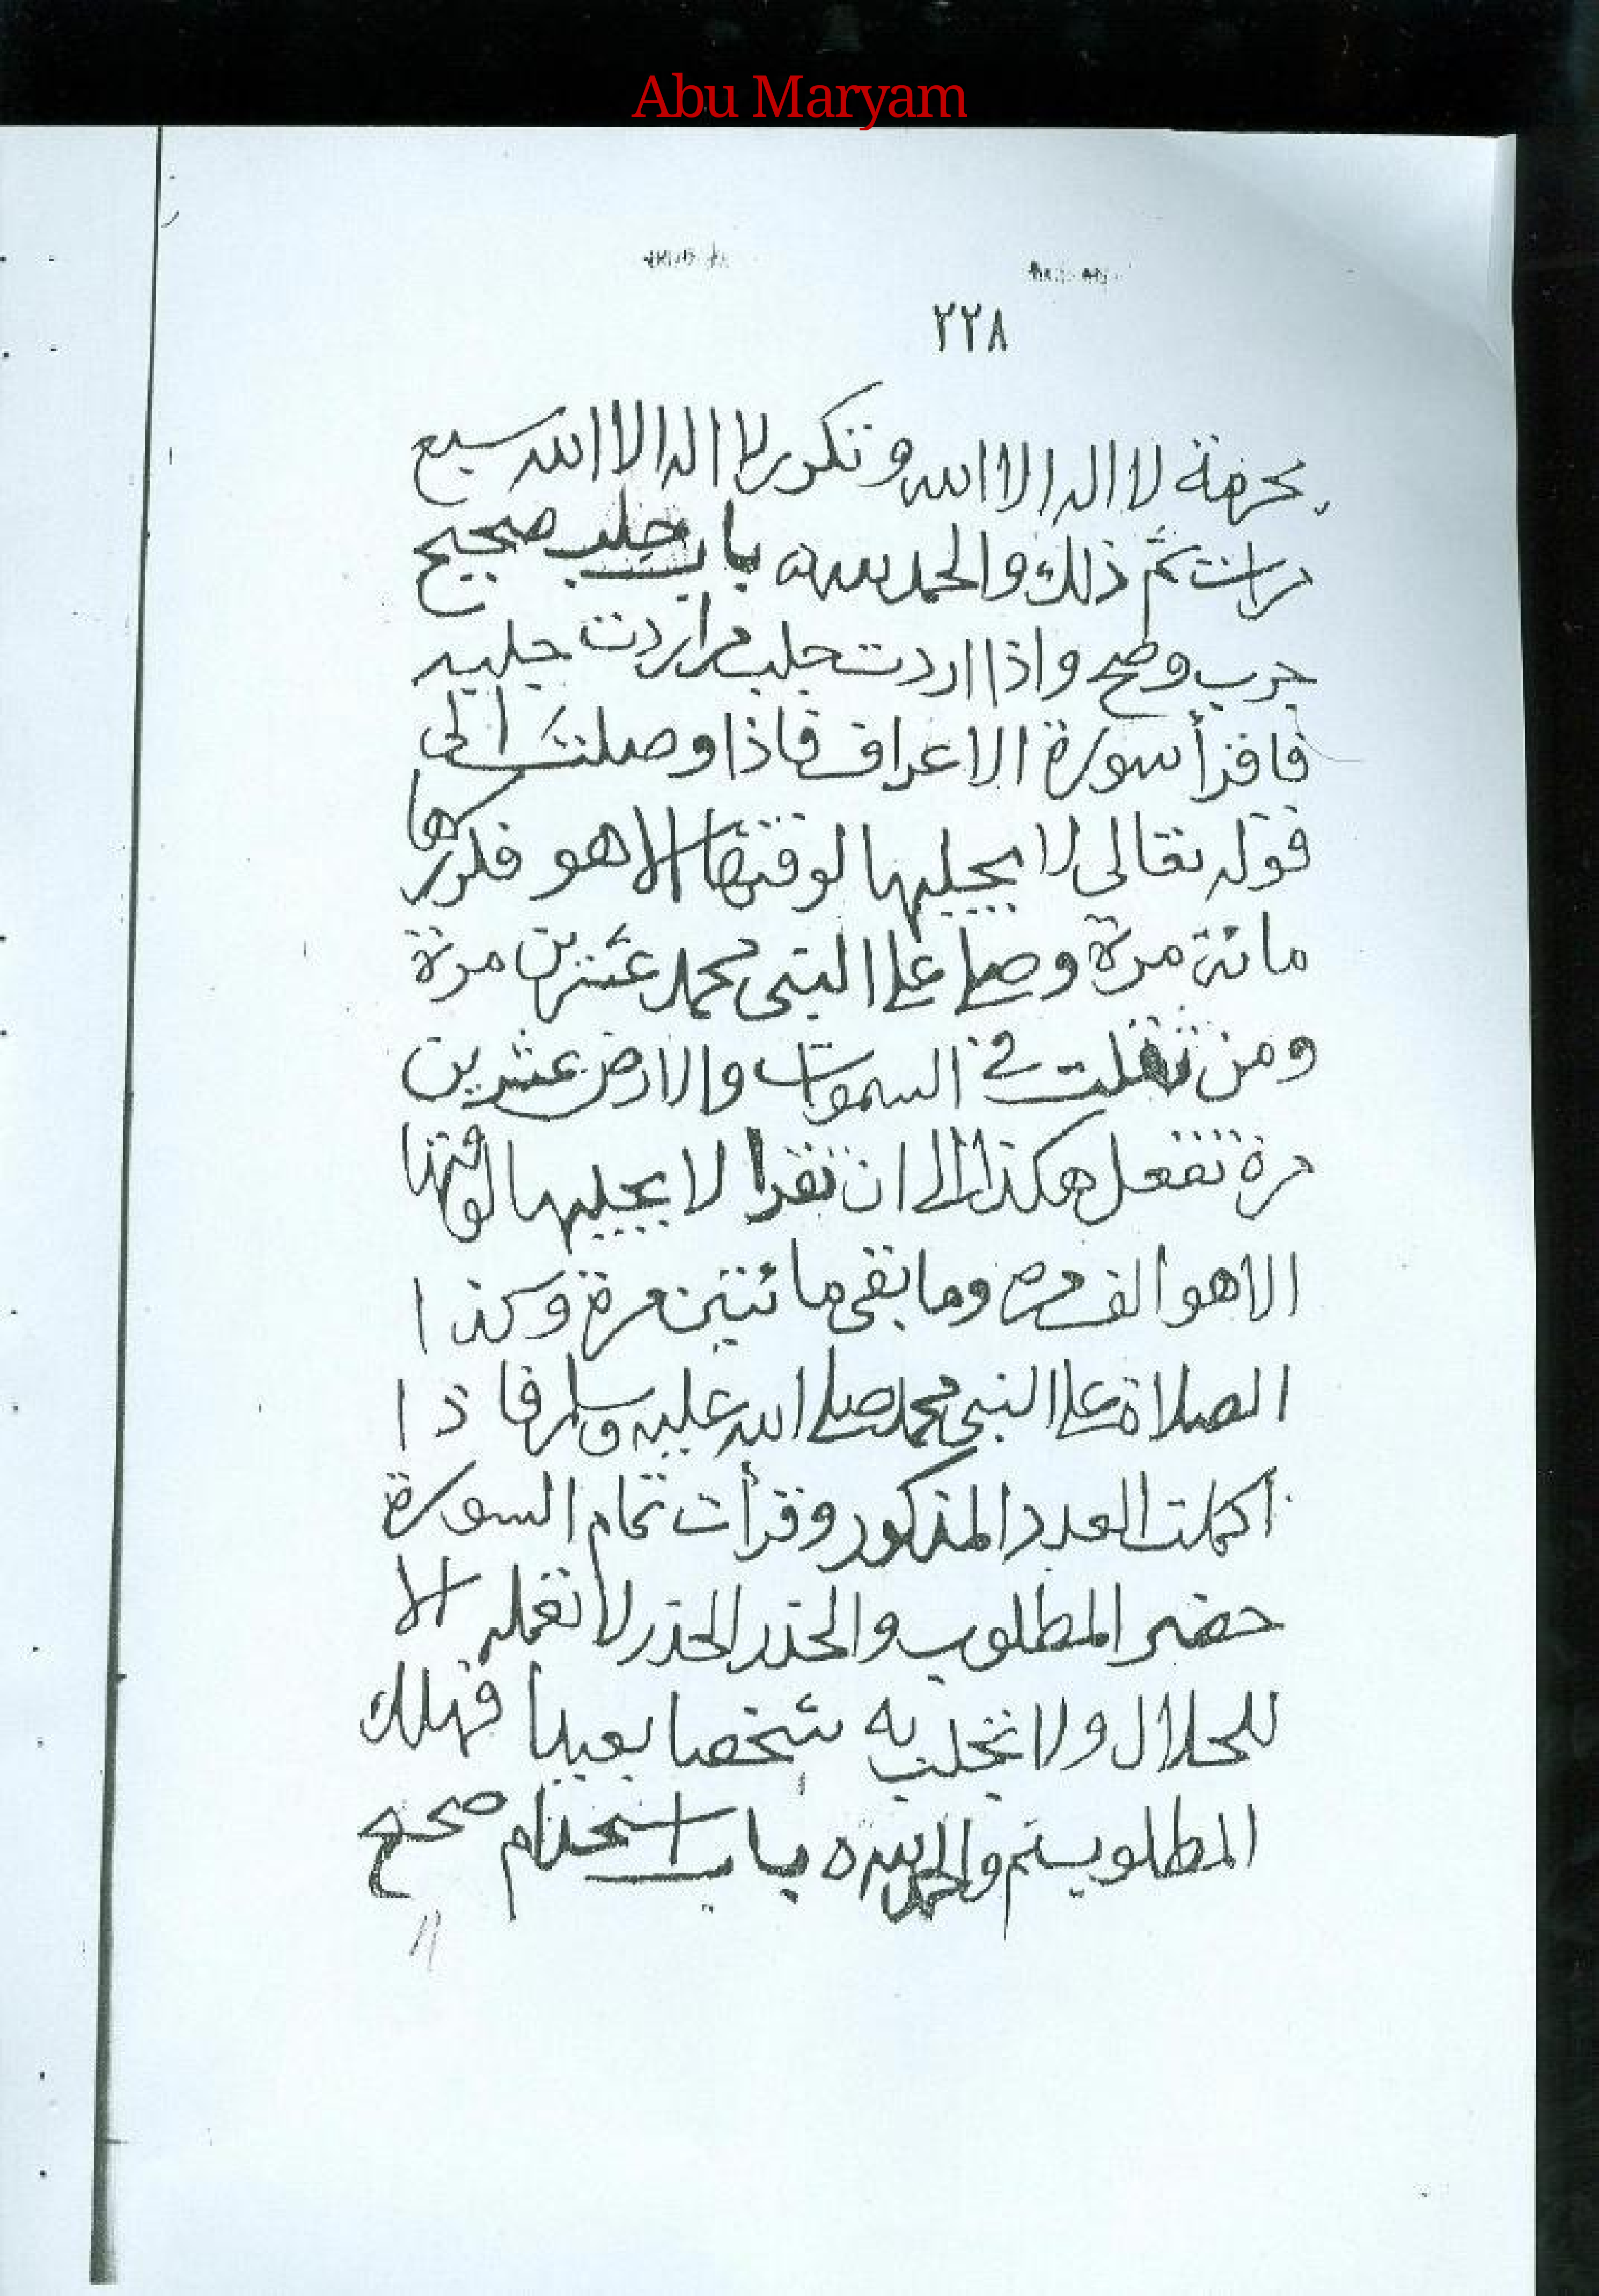 Abu Maryam
٢٢٨
بحرمة لا اله الا الله وتكرر لا اله الا الله سبع
مرات تم ذلك والحمد لله باب جلب صحيح
جرب وصح واذا اردت جلب من اردت جلبه
فاقرأ سورة الاعراف فاذا وصلت الى
قوله تعالى لا يجليها لوقتها الا هو فكررها
مائة مرة وصل على النبى محمد عشرين مرة
ومن ثقلت في السموات والارض عشرين
مرة تفعل هكذا الى ان تقرا لا يجليها لوقتها
الا هو الف مرة وما بقى مائتين مرة وكذا
الصلاة على النبى محمد صلى الله عليه وسلم فاذا
أكملت العدد المذكور وقرأت تمام السورة
حضر المطلوب والحذر الحذر لا تفعله الا
للحلال ولا تجلب به شخصا بعيدا فيهلك
المطلوب تم والحمد لله باب استخدام صحيح